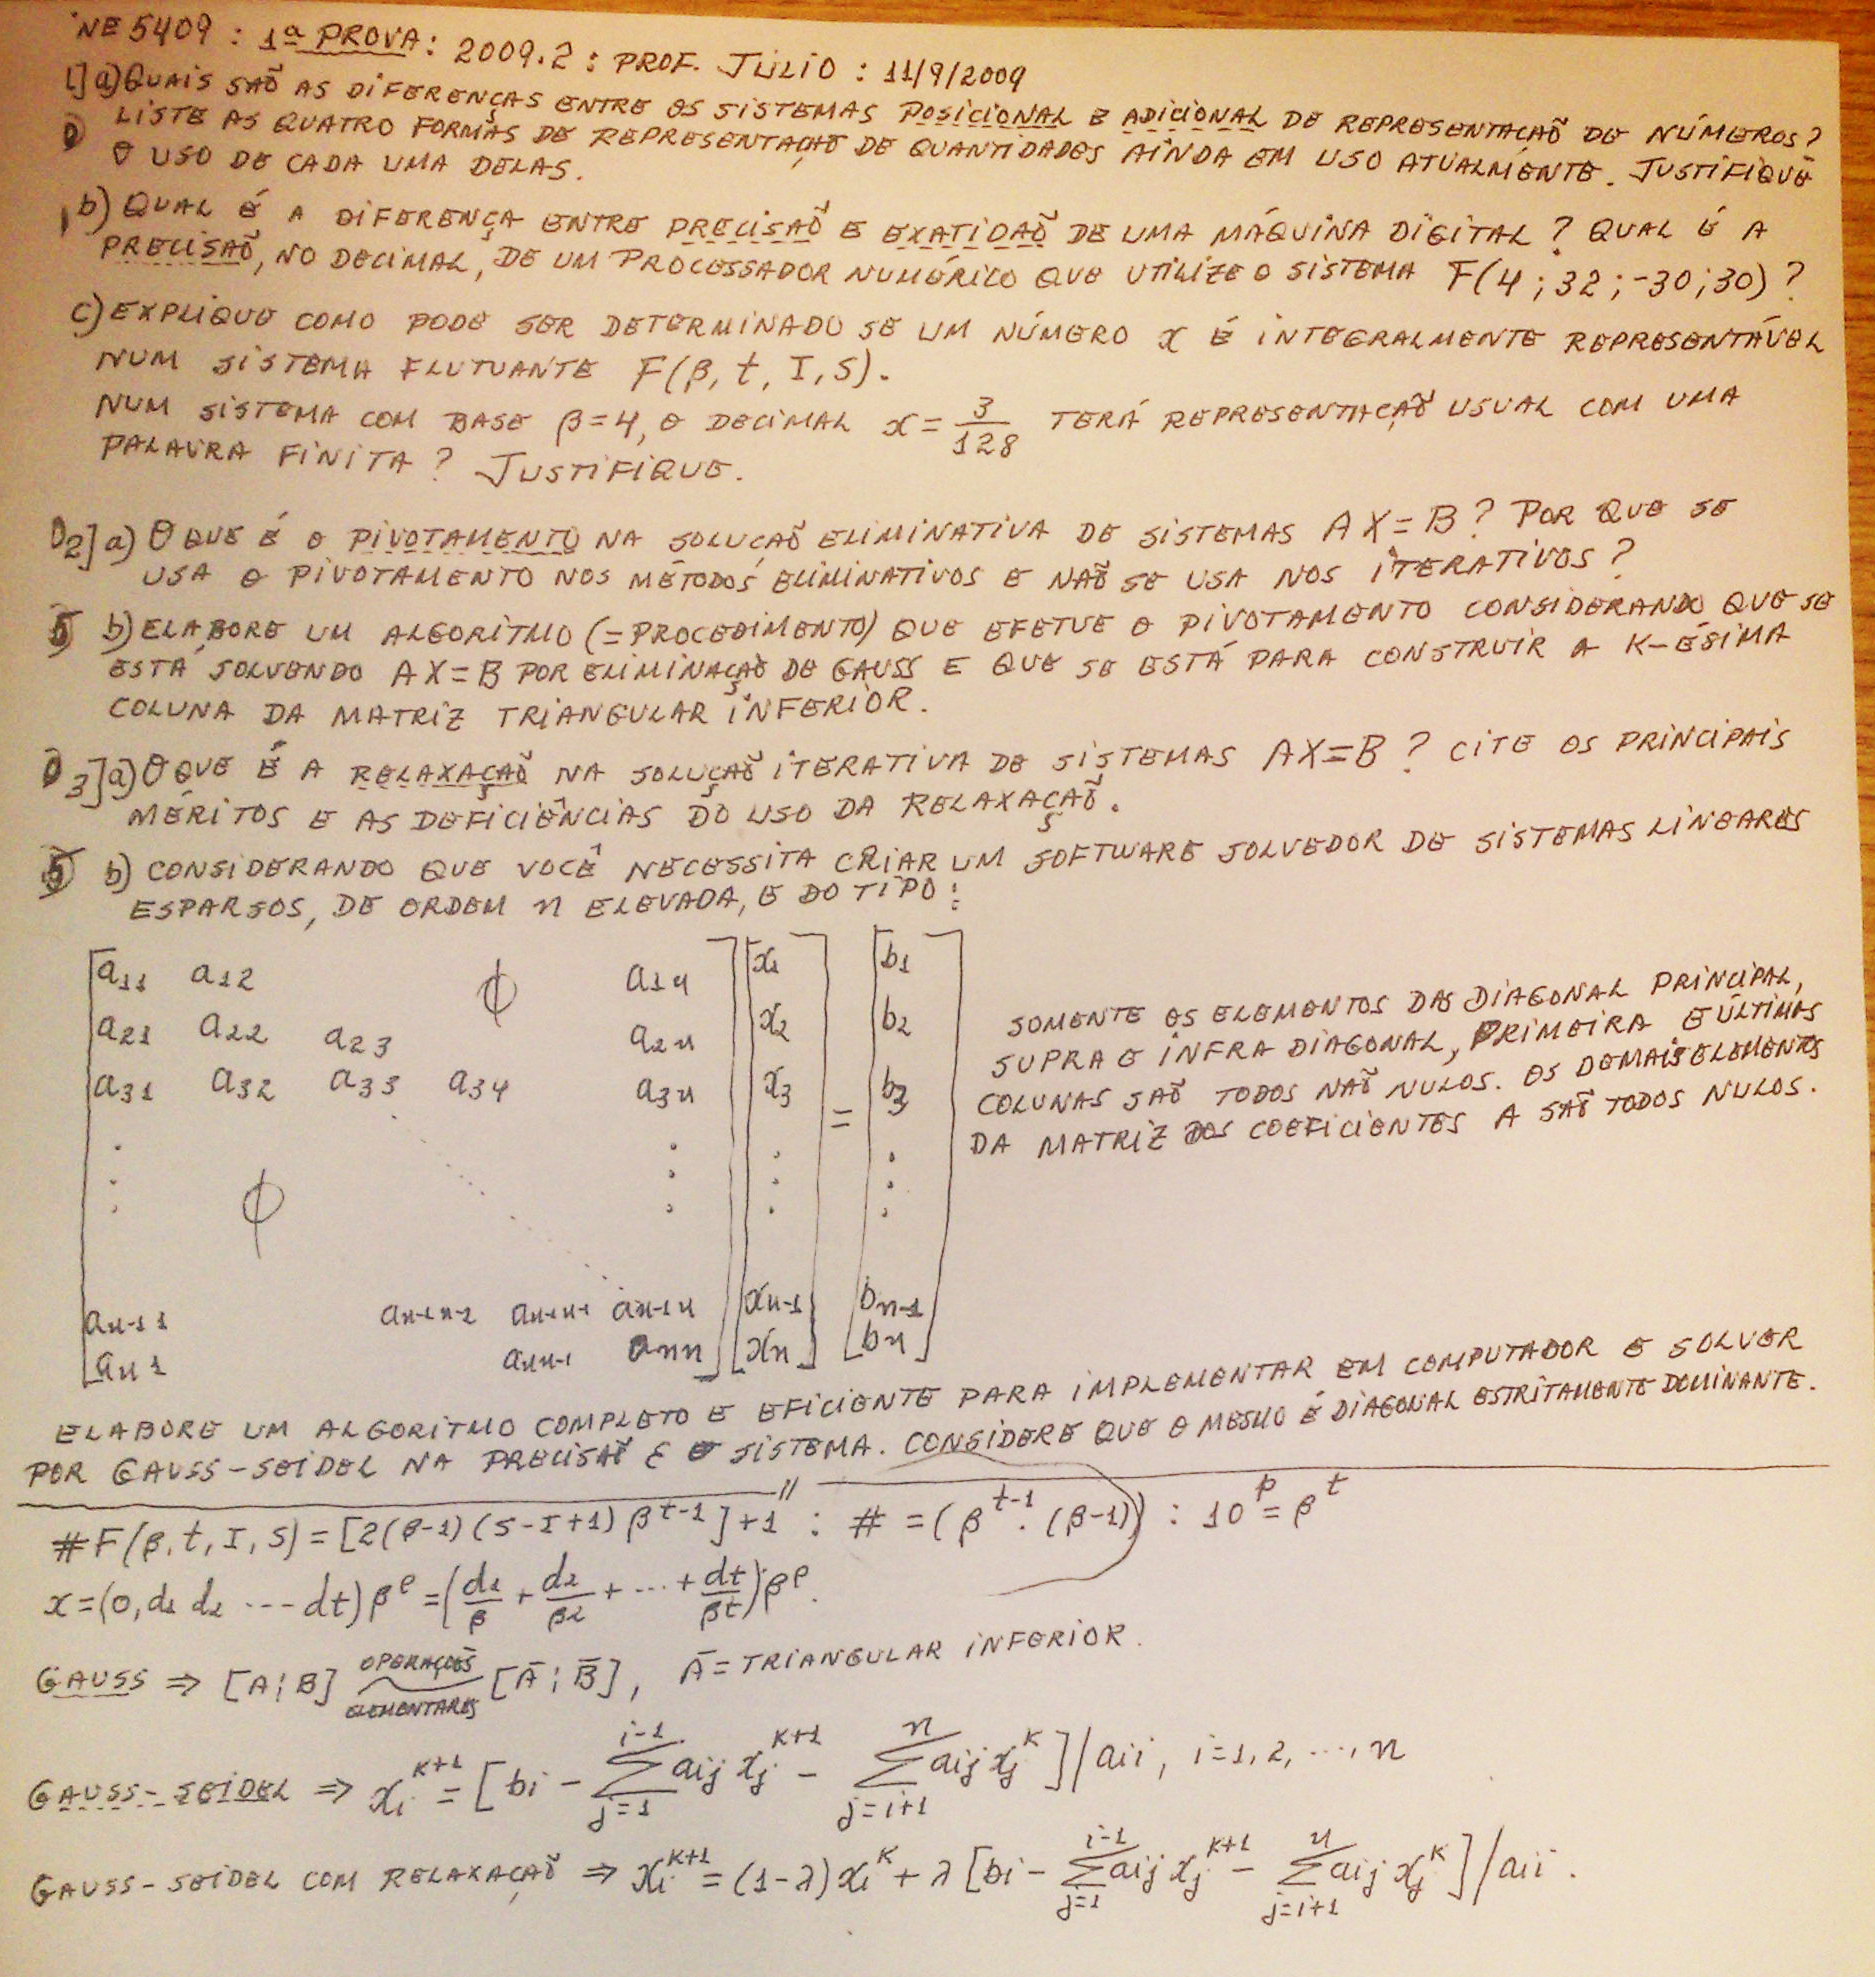 INE5409 : 1ª PROVA : 2009.2 : PROF. JÚLIO : 11/9/2009
1] a) QUAIS SÃO AS DIFERENÇAS ENTRE OS SISTEMAS POSICIONAL E ADICIONAL DE REPRESENTAÇÃO DE NÚMEROS?
LISTE AS QUATRO FORMAS DE REPRESENTAÇÃO DE QUANTIDADES AINDA EM USO ATUALMENTE. JUSTIFIQUE
O USO DE CADA UMA DELAS.
b) QUAL É A DIFERENÇA ENTRE PRECISÃO E EXATIDÃO DE UMA MÁQUINA DIGITAL? QUAL É A
PRECISÃO, NO DECIMAL, DE UM PROCESSADOR NUMÉRICO QUE UTILIZE O SISTEMA F(4;32;-30;30)?
c) EXPLIQUE COMO PODE SER DETERMINADO SE UM NÚMERO x É INTEGRALMENTE REPRESENTÁVEL
NUM SISTEMA FLUTUANTE F(β, t, I, S).
NUM SISTEMA COM BASE β=4, O DECIMAL x = 3/128 TERÁ REPRESENTAÇÃO USUAL COM UMA
PALAVRA FINITA? JUSTIFIQUE.
2] a) O QUE É O PIVOTAMENTO NA SOLUÇÃO ELIMINATIVA DE SISTEMAS AX=B? POR QUE SE
USA O PIVOTAMENTO NOS MÉTODOS ELIMINATIVOS E NÃO SE USA NOS ITERATIVOS?
b) ELABORE UM ALGORITMO (=PROCEDIMENTO) QUE EFETUE O PIVOTAMENTO CONSIDERANDO QUE SE
ESTÁ SOLVENDO AX=B POR ELIMINAÇÃO DE GAUSS E QUE SE ESTÁ PARA CONSTRUIR A K-ÉSIMA
COLUNA DA MATRIZ TRIANGULAR INFERIOR.
3] a) O QUE É A RELAXAÇÃO NA SOLUÇÃO ITERATIVA DE SISTEMAS AX=B? CITE OS PRINCIPAIS
MÉRITOS E AS DEFICIÊNCIAS DO USO DA RELAXAÇÃO.
b) CONSIDERANDO QUE VOCÊ NECESSITA CRIAR UM SOFTWARE SOLVEDOR DE SISTEMAS LINEARES
ESPARSOS, DE ORDEM n ELEVADA, E DO TIPO:
a11 a12 ϕ a1n x1 b1
a21 a22 a23 a2n x2 b2
a31 a32 a33 a34 a3n x3 = b3
ϕ
an-1 1 an-1 n-2 an-1 n-1 an-1 n xn-1 bn-1
an1 ann-1 ann xn bn
SOMENTE OS ELEMENTOS DAS DIAGONAL PRINCIPAL,
SUPRA E INFRA DIAGONAL, PRIMEIRA E ÚLTIMAS
COLUNAS SÃO TODOS NÃO NULOS. OS DEMAIS ELEMENTOS
DA MATRIZ DOS COEFICIENTES A SÃO TODOS NULOS.
ELABORE UM ALGORITMO COMPLETO E EFICIENTE PARA IMPLEMENTAR EM COMPUTADOR E SOLVER
POR GAUSS-SEIDEL NA PRECISÃO ε O SISTEMA. CONSIDERE QUE O MESMO É DIAGONAL ESTRITAMENTE DOMINANTE.
#F(β, t, I, S) = [2(β-1)(S-I+1)β^(t-1)]+1 : # = (β^(t-1).(β-1)) : 10^p = β^t
x = (0,d1 d2 ... dt)β^e = (d1/β + d2/β2 + ... + dt/βt)β^e.
GAUSS ⇒ [A¦B] OPERAÇÕES ELEMENTARES [Ā¦B̄], Ā = TRIANGULAR INFERIOR.
GAUSS-SEIDEL ⇒ xi^(k+1) = [bi - Σ(j=1; i-1) aij xj^(k+1) - Σ(j=i+1; n) aij xj^k]/aii, i=1,2,...,n
GAUSS-SEIDEL COM RELAXAÇÃO ⇒ xi^(k+1) = (1-λ)xi^k + λ[bi - Σ(j=1; i-1) aij xj^(k+1) - Σ(j=i+1; n) aij xj^k]/aii.